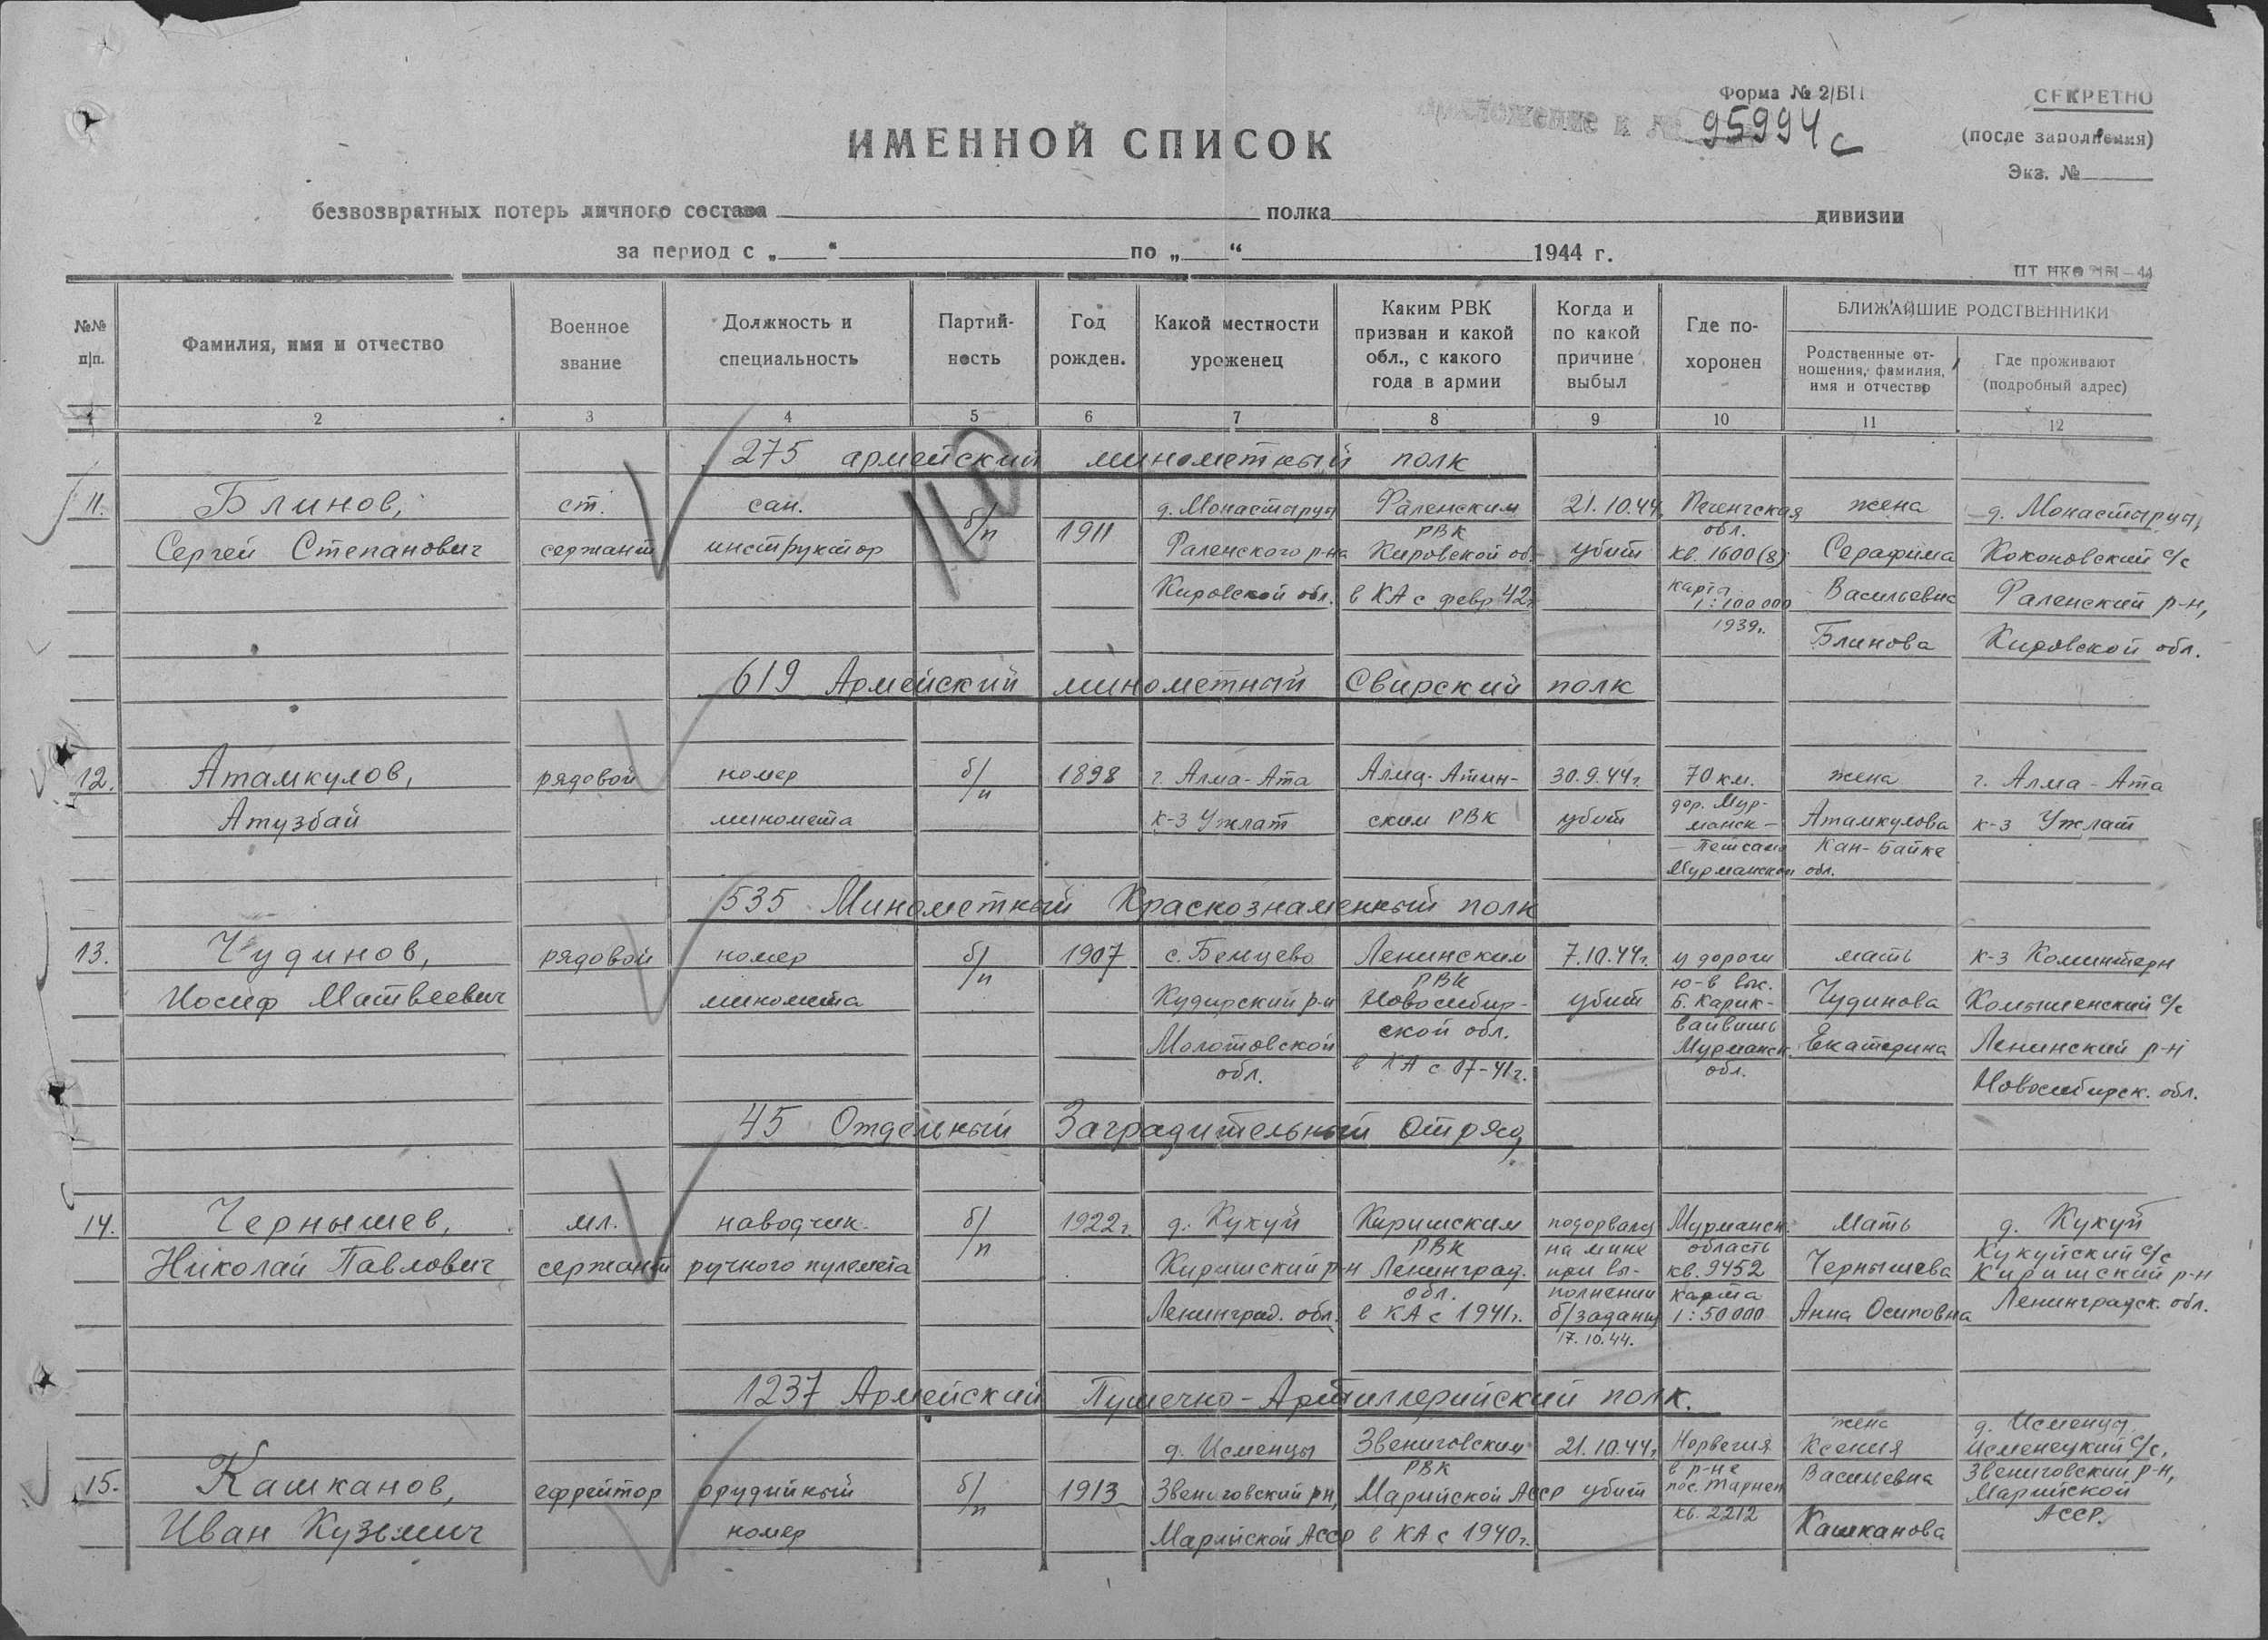 Форма № 2/БП
СЕКРЕТНО
приложение к № 95994с
(после заполнения)
Экз. №
ИМЕННОЙ СПИСОК
безвозвратных потерь личного состава полка дивизии
за период с „ “ по „ “ 1944 г.
№№ п|п.
Фамилия, имя и отчество
Военное звание
Должность и специальность
Партий-
ность
Год рожден.
Какой местности уроженец
Каким РВК
призван и какой
обл., с какого
года в армии
Когда и
по какой
причине
выбыл
Где по-
хоронен
БЛИЖАЙШИЕ РОДСТВЕННИКИ
Родственные от-
ношения, фамилия,
имя и отчество
Где проживают
(подробный адрес)
1 2 3 4 5 6 7 8 9 10 11 12
275 армейский минометный полк
11. Блинов, ст. сан. б/п 1911 д. Монастыри Фаленским 21.10.44. Печенгская жена д. Монастыри,
РВК обл.
Сергей Степанович сержант инструктор Фаленского р-на Кировской об. убит кв. 1600(8) Серафима Коконовский с/с
Кировской обл. в КА с февр 42г карта Васильевна Фаленский р-н,
1:100 000
1939г. Блинова Кировской обл.
619 Армейский минометный Свирский полк
12. Атамкулов, рядовой номер б/п 1898 г. Алма-Ата Алма-Атин- 30.9.44г. 70 км. жена г. Алма-Ата
дор. Мур-
Атузбай миномета к-з Ужлат ским РВК убит манск- Атамкулова к-з Ужлат
- Петсамо Кан-Байке
Мурманской обл.
535 Минометный Краснознаменный полк
13. Чудинов, рядовой номер б/п 1907 с. Бемцево Ленинским 7.10.44г. у дороги мать к-з Коминтерн
РВК ю-в выс.
Иосиф Матвеевич миномета Кудирский р-н Новосибир- убит Б. Карик- Чудинова Комышенский с/с
ской обл. вайвишь
Молотовской Мурманск. Екатерина Ленинский р-н
обл. в КА с 07-41г. обл.
Новосибирск. обл.
45 Отдельный Заградительный отряд
14. Чернышев, мл. наводчик б/п 1922г. д. Кукуй Киришским подорвался Мурманск. Мать д. Кукуй
РВК на мине область Кукуйский с/с
Николай Павлович сержант ручного пулемета Киришский р-н Ленинград. при вы- кв. 9452 Чернышева Киришский р-н
обл. полнении карта
Ленинград. обл. в КА с 1941г. б/задания 1:50000 Анна Осиповна Ленинградск. обл.
17.10.44.
1237 Армейский Пушечно-Артиллерийский полк.
жена д. Исменцы
д. Исменцы Звениговским 21.10.44г. Норвегия Ксения Исменецкий с/с,
РВК в р-не
15. Кашканов, ефрейтор орудийный б/п 1913 Звениговский р-н, Марийской АССР убит пос. Тарнет Васильевна Звениговский р-н,
Марийской
Иван Кузьмич номер Марийской АССР в КА с 1940г. кв. 2212 Кашканова АССР.